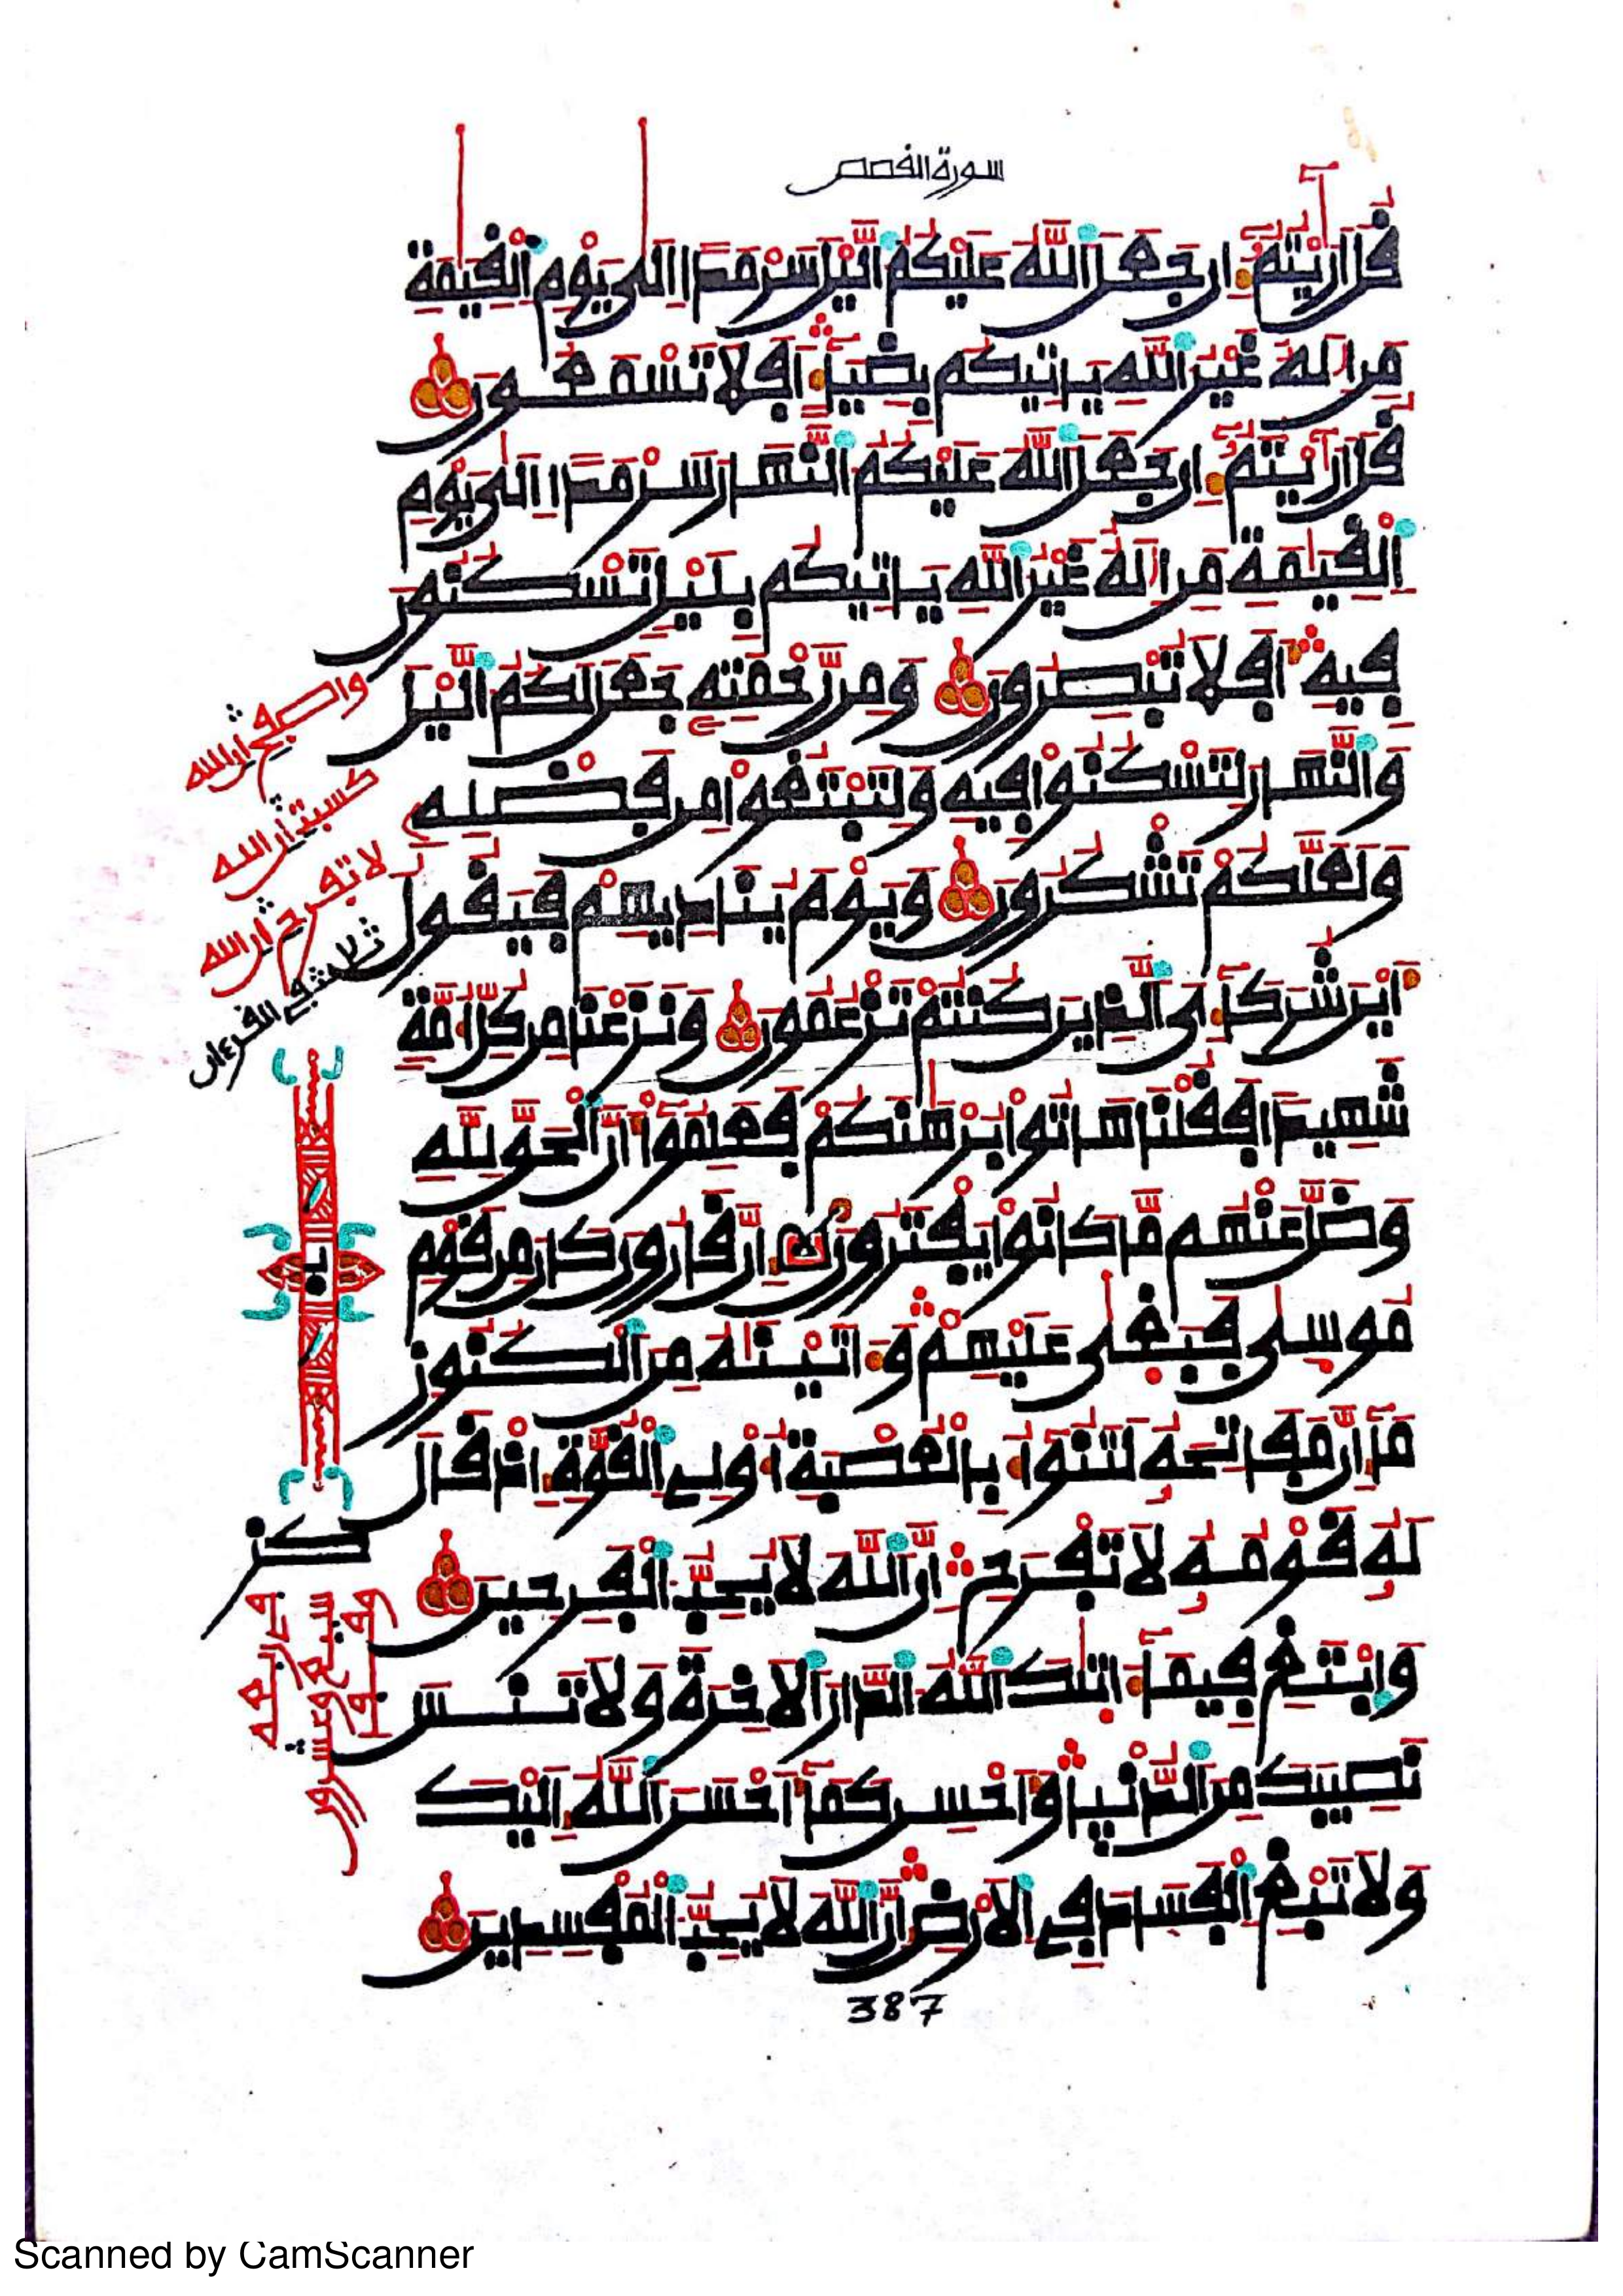 سورة القصص
قُلَ اَرَٰٓيْتُمُۥٓ إِن جَعَلَ اَللَّهُ عَلَيْكُمُ اُليْلَ سَرْمَداً اِلَىٰ يَوْمِ اِلْقِيَٰمَةِ
مَنِ اِلَٰهٌ غَيْرُ اُللَّهِ يَاتِيكُم بِضِيَآءٍ اَفَلَا تَسْمَعُونَ
قُلَ اَرَٰٓيْتُمُۥٓ إِن جَعَلَ اَللَّهُ عَلَيْكُمُ اُلنَّهَارَ سَرْمَداً اِلَىٰ يَوْمِ
اِلْقِيَٰمَةِ مَنِ اِلَٰهٌ غَيْرُ اُللَّهِ يَاتِيكُم بِلَيْلٍ تَسْكُنُونَ
فِيهِ أَفَلَا تُبْصِرُونَ وَمِن رَّحْمَتِهِۦ جَعَلَ لَكُمُ اُليْلَ
وَالنَّهَارَ لِتَسْكُنُوا فِيهِ وَلِتَبْتَغُوا مِن فَضْلِهِۦ
وَلَعَلَّكُمْ تَشْكُرُونَ وَيَوْمَ يُنَادِيهِمْ فَيَقُولُ
أَيْنَ شُرَكَآءِىَ اَلذِينَ كُنتُمْ تَزْعُمُونَ وَنَزَعْنَا مِن كُلِّ أُمَّةٍ
شَهِيداً فَقُلْنَا هَاتُوا بُرْهَٰنَكُمْ فَعَلِمُوا أَنَّ اَلْحَقَّ لِلهِ
وَضَلَّ عَنْهُم مَّا كَانُوا يَفْتَرُونَ إِنَّ قَٰرُونَ كَانَ مِن قَوْمِ
مُوسَىٰ فَبَغَىٰ عَلَيْهِمْ وَءَاتَيْنَٰهُ مِنَ اَلْكُنُوزِ
مَآ إِنَّ مَفَاتِحَهُۥ لَتَنُوأُ بِالْعُصْبَةِ أُوْلِے اِلْقُوَّةِ إِذْ قَالَ
لَهُۥ قَوْمُهُۥ لَا تَفْرَحِ اِنَّ اَللَّهَ لَا يُحِبُّ اُلْفَرِحِينَ
وَابْتَغِ فِيمَآ ءَاتَيٰكَ اَللَّهُ اُلدَّارَ اَلَاخِرَةَ وَلَا تَنسَ
نَصِيبَكَ مِنَ اَلدُّنْيا وَأَحْسِن كَمَآ أَحْسَنَ اَللَّهُ إِلَيْكَ
وَلَا تَبْغِ اِلْفَسَادَ فِے اِلَارْضِ إِنَّ اَللَّهَ لَا يُحِبُّ اُلْمُفْسِدِينَ
واصفح ان الله
كسبت ان الله
لا تفرح ان الله
ثلاث في القرءان
كز
387
Scanned by CamScanner